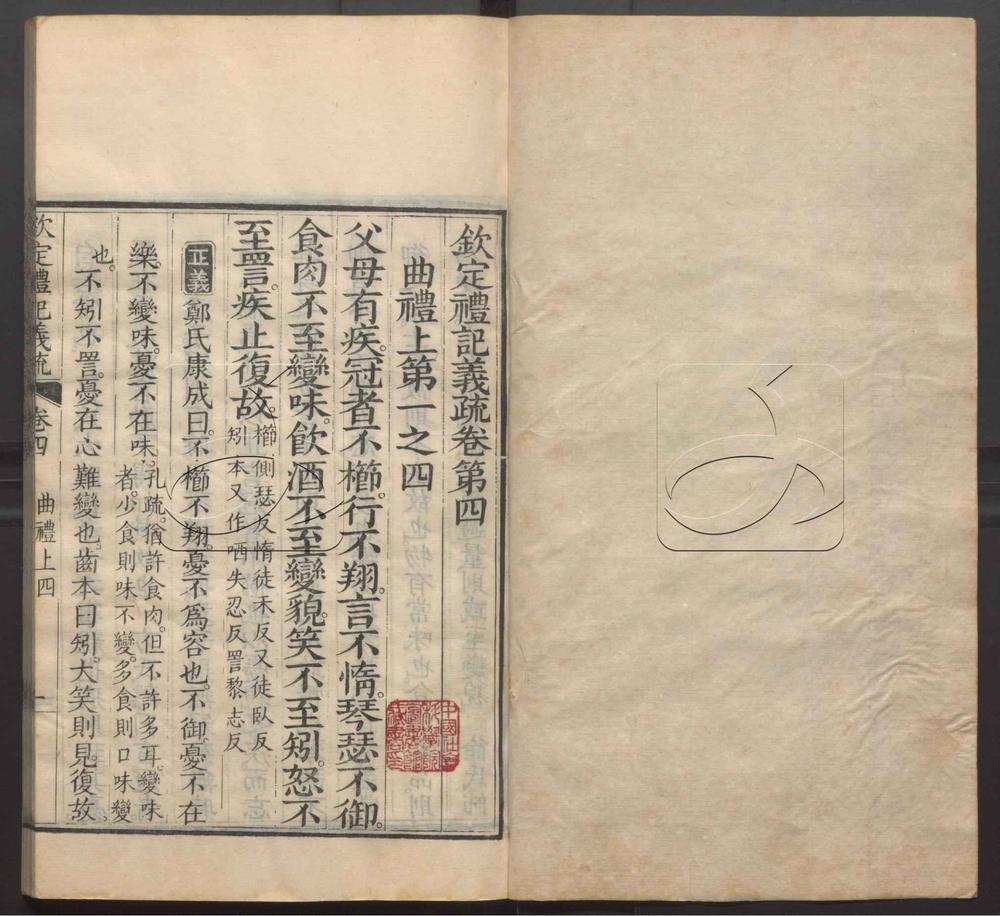 欽定禮記義疏卷第四
曲禮上第一之四
父母有疾。冠者不櫛。行不翔。言不惰。琴瑟不御。
食肉不至變味。飲酒不至變貌。笑不至矧。怒不
至詈。疾止復故。櫛側瑟反惰徒禾反又徒臥反
矧本又作哂失忍反詈黎志反
正義鄭氏康成曰。不櫛不翔。憂不爲容也。不御。憂不在
樂。不變味。憂不在味。孔疏。猶許食肉。但不許多耳。變味
者。少食則味不變。多食則口味變
也。不矧不詈。憂在心難變也。齒本曰矧。大笑則見。復故。
欽定禮記義疏 卷四 曲禮上四 一